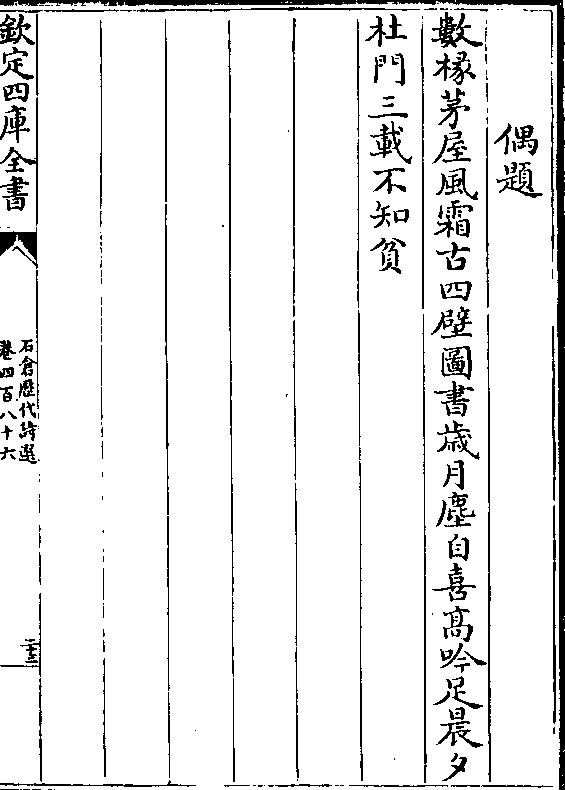 偶題
數椽茅屋風霜古四壁圖書歳月塵自喜髙吟足晨夕
杜門三載不知貧
欽定四庫全書
石倉歴代詩選
卷四百八十六
二十三